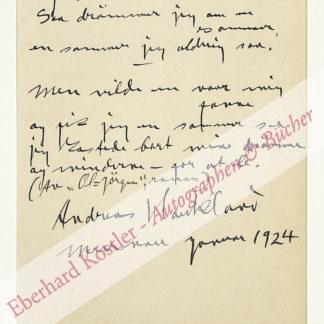 Saa drømmer jeg om en
sommer
en sommer jeg aldrig saa.
Men vilde en vaar mig
favne
og jeg en sommer
jeg kastede bort mine drømme
og minderne – for at
(Av "Ol-Jørgen", roman)
Andreas Haukland
Meran januar 1924
Eberhard Köstler - Autographen & Bücher